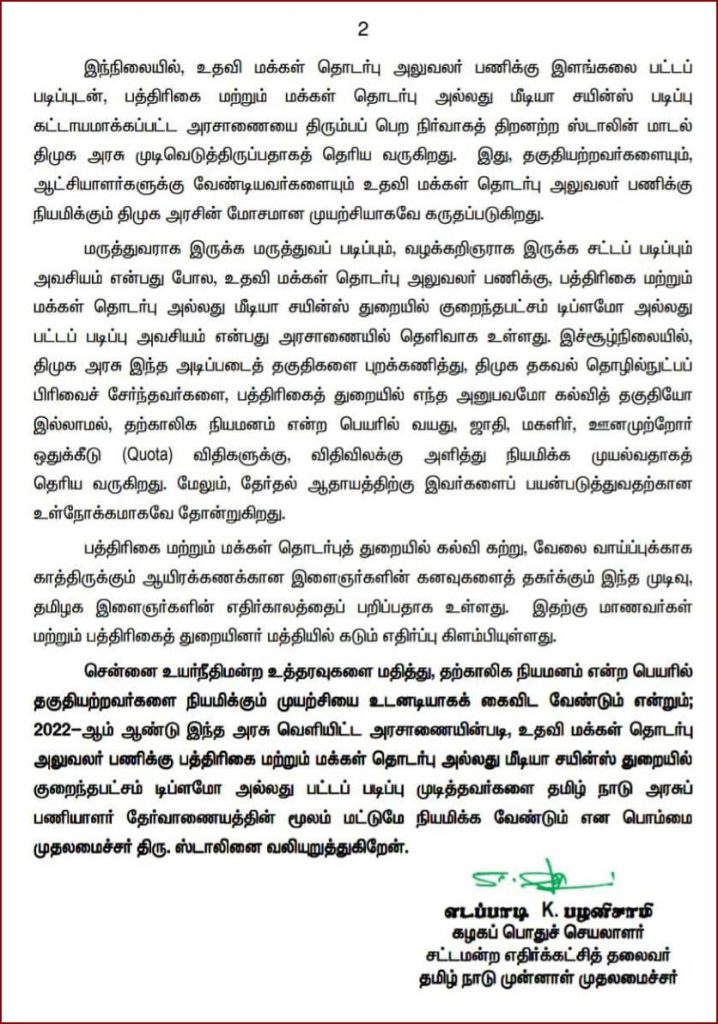 2
இந்நிலையில், உதவி மக்கள் தொடர்பு அலுவலர் பணிக்கு இளங்கலை பட்டப்
படிப்புடன், பத்திரிகை மற்றும் மக்கள் தொடர்பு அல்லது மீடியா சயின்ஸ் படிப்பு
கட்டாயமாக்கப்பட்ட அரசாணையை திரும்பப் பெற நிர்வாகத் திறனற்ற ஸ்டாலின் மாடல்
திமுக அரசு முடிவெடுத்திருப்பதாகத் தெரிய வருகிறது. இது, தகுதியற்றவர்களையும்,
ஆட்சியாளர்களுக்கு வேண்டியவர்களையும் உதவி மக்கள் தொடர்பு அலுவலர் பணிக்கு
நியமிக்கும் திமுக அரசின் மோசமான முயற்சியாகவே கருதப்படுகிறது.
மருத்துவராக இருக்க மருத்துவப் படிப்பும், வழக்கறிஞராக இருக்க சட்டப் படிப்பும்
அவசியம் என்பது போல, உதவி மக்கள் தொடர்பு அலுவலர் பணிக்கு, பத்திரிகை மற்றும்
மக்கள் தொடர்பு அல்லது மீடியா சயின்ஸ் துறையில் குறைந்தபட்சம் டிப்ளமோ அல்லது
பட்டப் படிப்பு அவசியம் என்பது அரசாணையில் தெளிவாக உள்ளது. இச்சூழ்நிலையில்,
திமுக அரசு இந்த அடிப்படைத் தகுதிகளை புறக்கணித்து, திமுக தகவல் தொழில்நுட்பப்
பிரிவைச் சேர்ந்தவர்களை, பத்திரிகைத் துறையில் எந்த அனுபவமோ கல்வித் தகுதியோ
இல்லாமல், தற்காலிக நியமனம் என்ற பெயரில் வயது, ஜாதி, மகளிர், ஊனமுற்றோர்
ஒதுக்கீடு (Quota) விதிகளுக்கு, விதிவிலக்கு அளித்து நியமிக்க முயல்வதாகத்
தெரிய வருகிறது. மேலும், தேர்தல் ஆதாயத்திற்கு இவர்களைப் பயன்படுத்துவதற்கான
உள்நோக்கமாகவே தோன்றுகிறது.
பத்திரிகை மற்றும் மக்கள் தொடர்புத் துறையில் கல்வி கற்று, வேலை வாய்ப்புக்காக
காத்திருக்கும் ஆயிரக்கணக்கான இளைஞர்களின் கனவுகளைத் தகர்க்கும் இந்த முடிவு,
தமிழக இளைஞர்களின் எதிர்காலத்தைப் பறிப்பதாக உள்ளது. இதற்கு மாணவர்கள்
மற்றும் பத்திரிகைத் துறையினர் மத்தியில் கடும் எதிர்ப்பு கிளம்பியுள்ளது.
சென்னை உயர்நீதிமன்ற உத்தரவுகளை மதித்து, தற்காலிக நியமனம் என்ற பெயரில்
தகுதியற்றவர்களை நியமிக்கும் முயற்சியை உடனடியாகக் கைவிட வேண்டும் என்றும்;
2022-ஆம் ஆண்டு இந்த அரசு வெளியிட்ட அரசாணையின்படி, உதவி மக்கள் தொடர்பு
அலுவலர் பணிக்கு பத்திரிகை மற்றும் மக்கள் தொடர்பு அல்லது மீடியா சயின்ஸ் துறையில்
குறைந்தபட்சம் டிப்ளமோ அல்லது பட்டப் படிப்பு முடித்தவர்களை தமிழ் நாடு அரசுப்
பணியாளர் தேர்வாணையத்தின் மூலம் மட்டுமே நியமிக்க வேண்டும் என பொம்மை
முதலமைச்சர் திரு. ஸ்டாலினை வலியுறுத்துகிறேன்.
எடப்பாடி K. பழனிசாமி
கழகப் பொதுச் செயலாளர்
சட்டமன்ற எதிர்க்கட்சித் தலைவர்
தமிழ் நாடு முன்னாள் முதலமைச்சர்